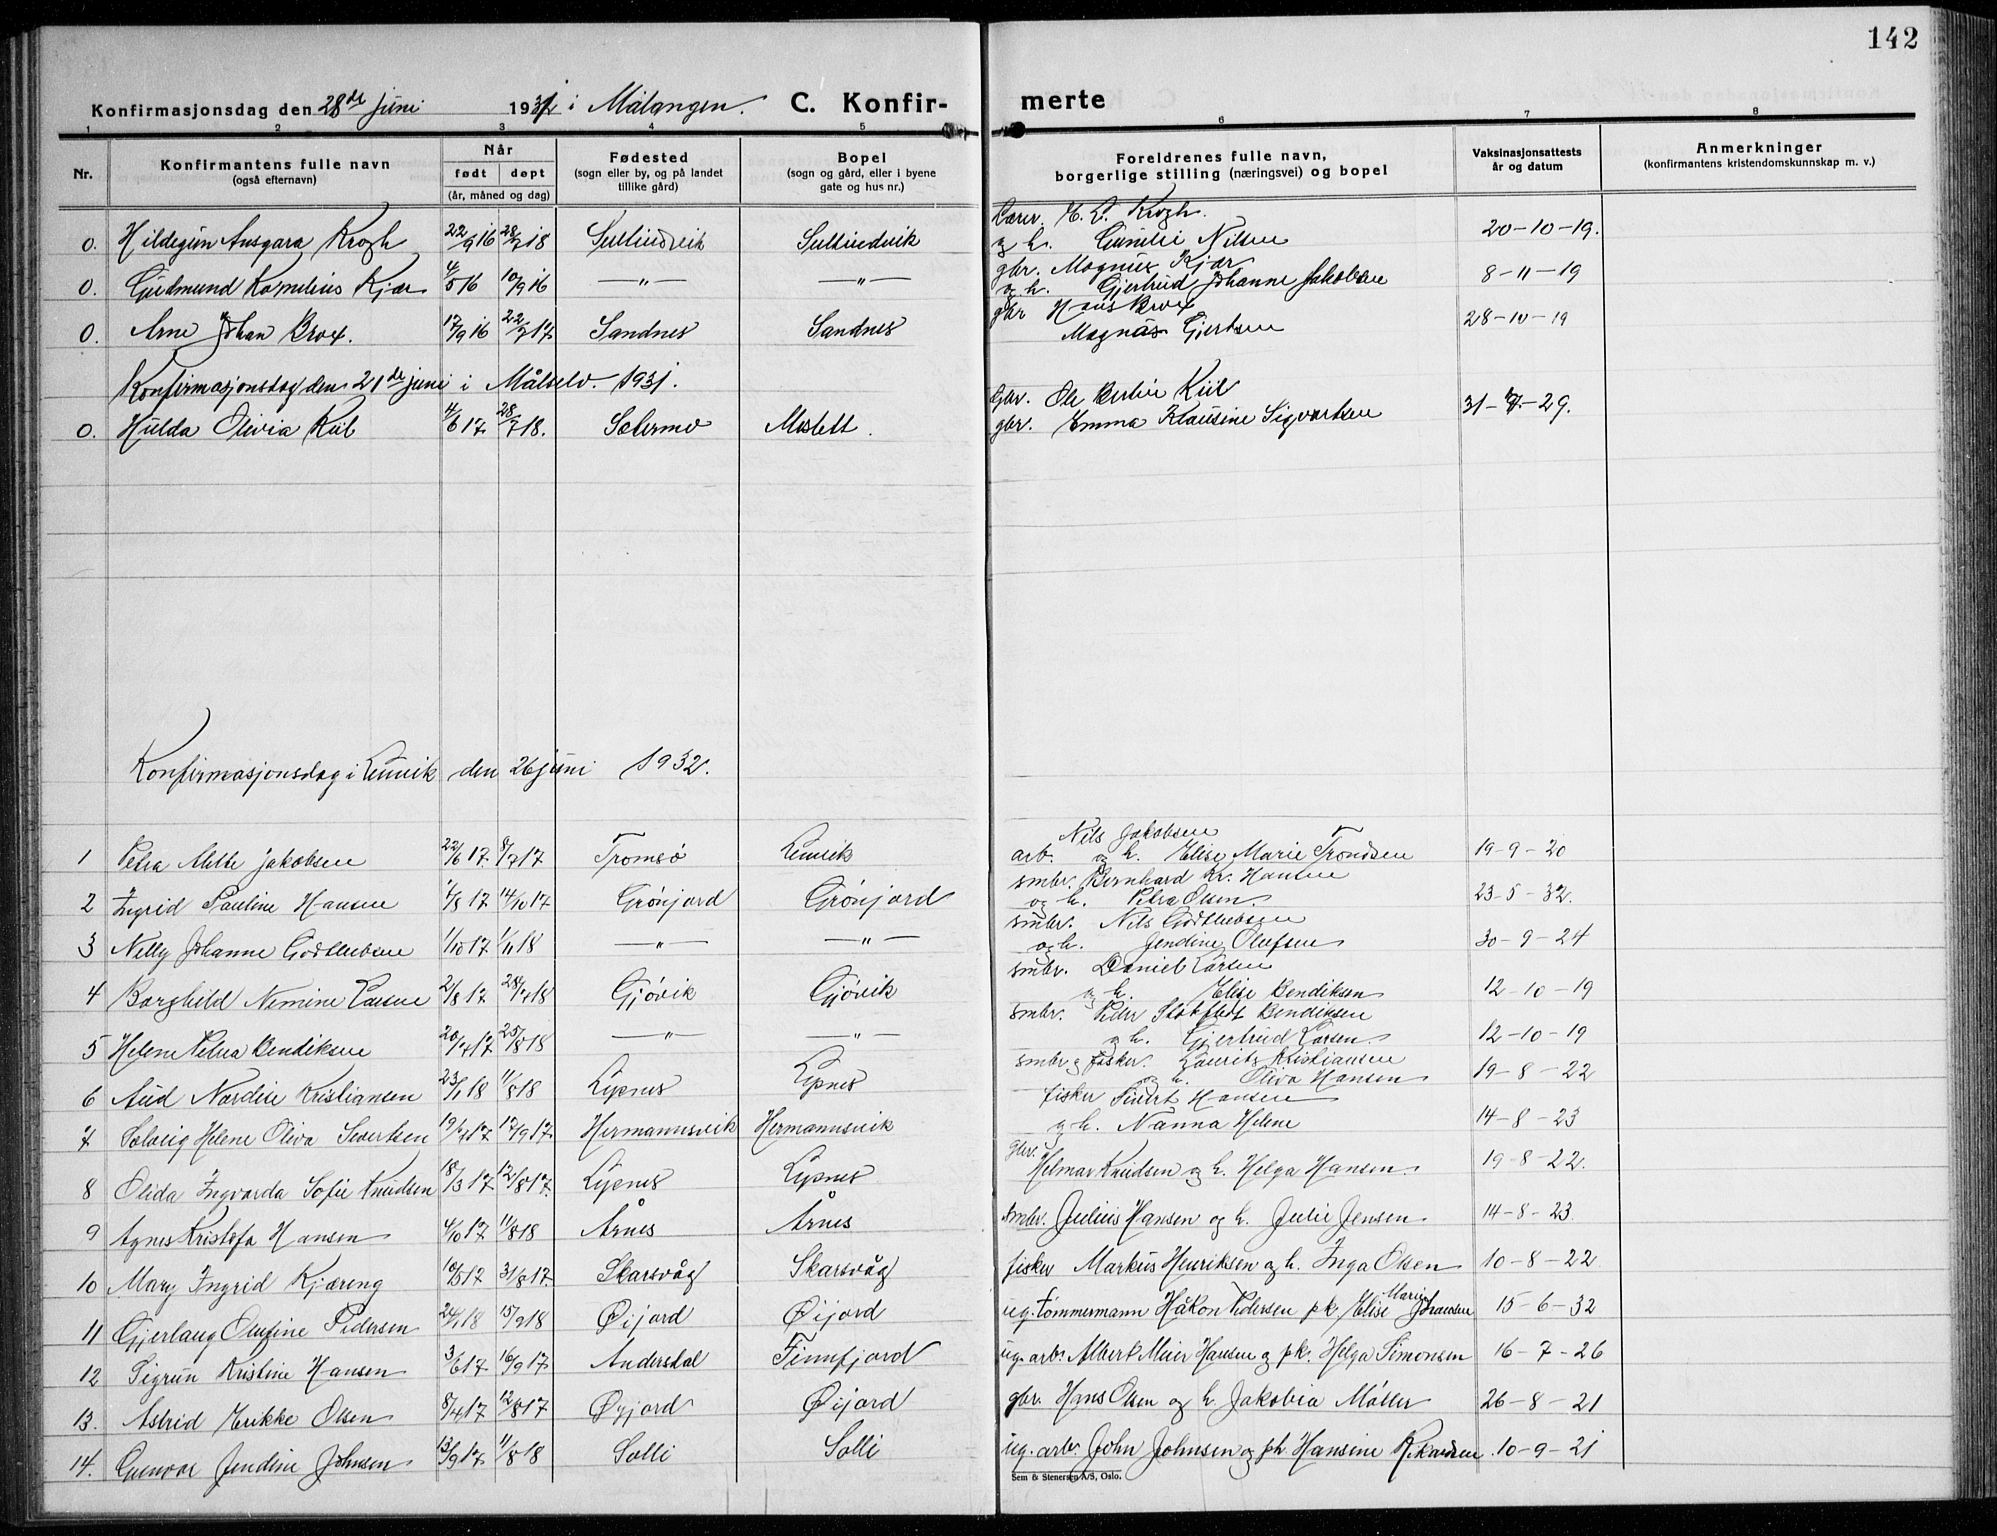 142
Konfirmasjonsdag den 28de juni 1931 i Målangen. C. Konfir-merte
1 2 3 4 5 6 7 8
Nr. Konfirmantens fulle navn (også efternavn) Når født døpt (år, måned og dag) Fødested (sogn eller by, og på landet tillike gård) Bopel (sogn og gård, eller i byene gate og hus nr.) Foreldrenes fulle navn, borgerlige stilling (næringsvei) og bopel Vaksinasjonsattests år og datum Anmerkninger (konfirmantens kristendomskunnskap m. v.)
0. Hildegun Ansgara Krogh 22/9 16 28/7 18 Sultindvik Sultindvik Lærer. Krogh. og h. Nilsen 20-10-19.
0. Gudmund Kornelius Kjær 4/5 16 10/9 16 —"— —"— gbr. Magnus Kjær og h. Gjertrud Johanne Jakobsen 8-11-19
0. Arne Johan Brox. 17/9 16 22/7 17. Sandnes Sandnes gbr Hans Brox Magnås Gjertsen 28-10-19
Konfirmasjonsdag den 21de juni i Målselv. 1931.
0. Hulda Olivia Kiil 4/6 17. 28/7 18. Sætermo Mestett. Gbr. Ole Kiil gbr. Emma Klausine Sigvartsen 31-7-29.
Konfirmasjonsdag i Lenvik den 26 juni 1932.
1 Petra Mette Jakobsen 22/6 17. 8/7 17 Tromsø Lenvik Nils Jakobsen arb. og h. Elise Marie Trondsen 19-9-20
2 Ingrid Pauline Hansen 7/8 17 14/10 17 Grønjord Grønjord smbr. Bernhard Kr. Hansen og h. Petra Olsen. 23-5-32.
3 Nelly Johanne Godtliebsen 1/10 17 1/11 18 —"— —"— smbr. Nils Godtliebsen og h. Jendine Olufsen 30-9-24
4 Borghild Nemine Larsen 2/8 17 28/7 18 Gjøvik Gjøvik smbr. Daniel Larsen og h. Elise Bendiksen 12-10-19
5 Helene Petra Bendiksen 20/7 17 25/8 18 —"— —"— smbr. Peder Bendiksen og h. Gjertrud Larsen 12-10-19
6 Aud Nordise Kristiansen 23/1 18 11/8 18 Lysnes Lysnes smbr og fisker. Laurits Kristiansen og h. Oliva Hansen 19-8-22
7 Solveig Helene Oliva Sivertsen 19/7 17 17/9 17. Hermannsvik Hermannsvik fisker Sivert Hansen og h. Nanna Helene 14-8-23
8 Olida Ingvarda Sofie Knudsen 18/3 17 12/8 17. Lysnes Lysnes gbr. Helmar Knudsen og h. Helga Hansen. 19-8-22.
9 Agnes Kristofa Hansen 4/10 17 11/8 18 Årnes Årnes smbr. Julius Hansen og h. Julie Jensen 14-8-23.
10 Mary Ingrid Kjæreng 10/5 17 31/8 17. Skarsvåg Skarsvåg fisker Markus Henriksen og h. Inga Olsen 10-8-22
11 Gjerlaug Olufine Pedersen 24/1 18 15/9 18 Øijord Øijord ug. tømmermann Håkon Pedersen pk. Elise Marie Johansen 15-6-32
12 Sigrun Kristine Hansen 3/6 17. 16/9 17. Andersdal Finnfjord ug. arb. Albert Meier Hansen og pk. Helga Simonsen 16-7-26
13. Astrid Erikke Olsen 8/4 17 12/8 17 Øyjord Øijord gbr. Hans Olsen og h. Jakobia Møller 26-8-21
14. Gunvor Jendine Johnsen 13/9 17. 11/8 18 Solli Solli ug. arb. John Johnsen og pk Hansine Rikardsen. 10-9-21
Sem & Stenersen A/S, Oslo.